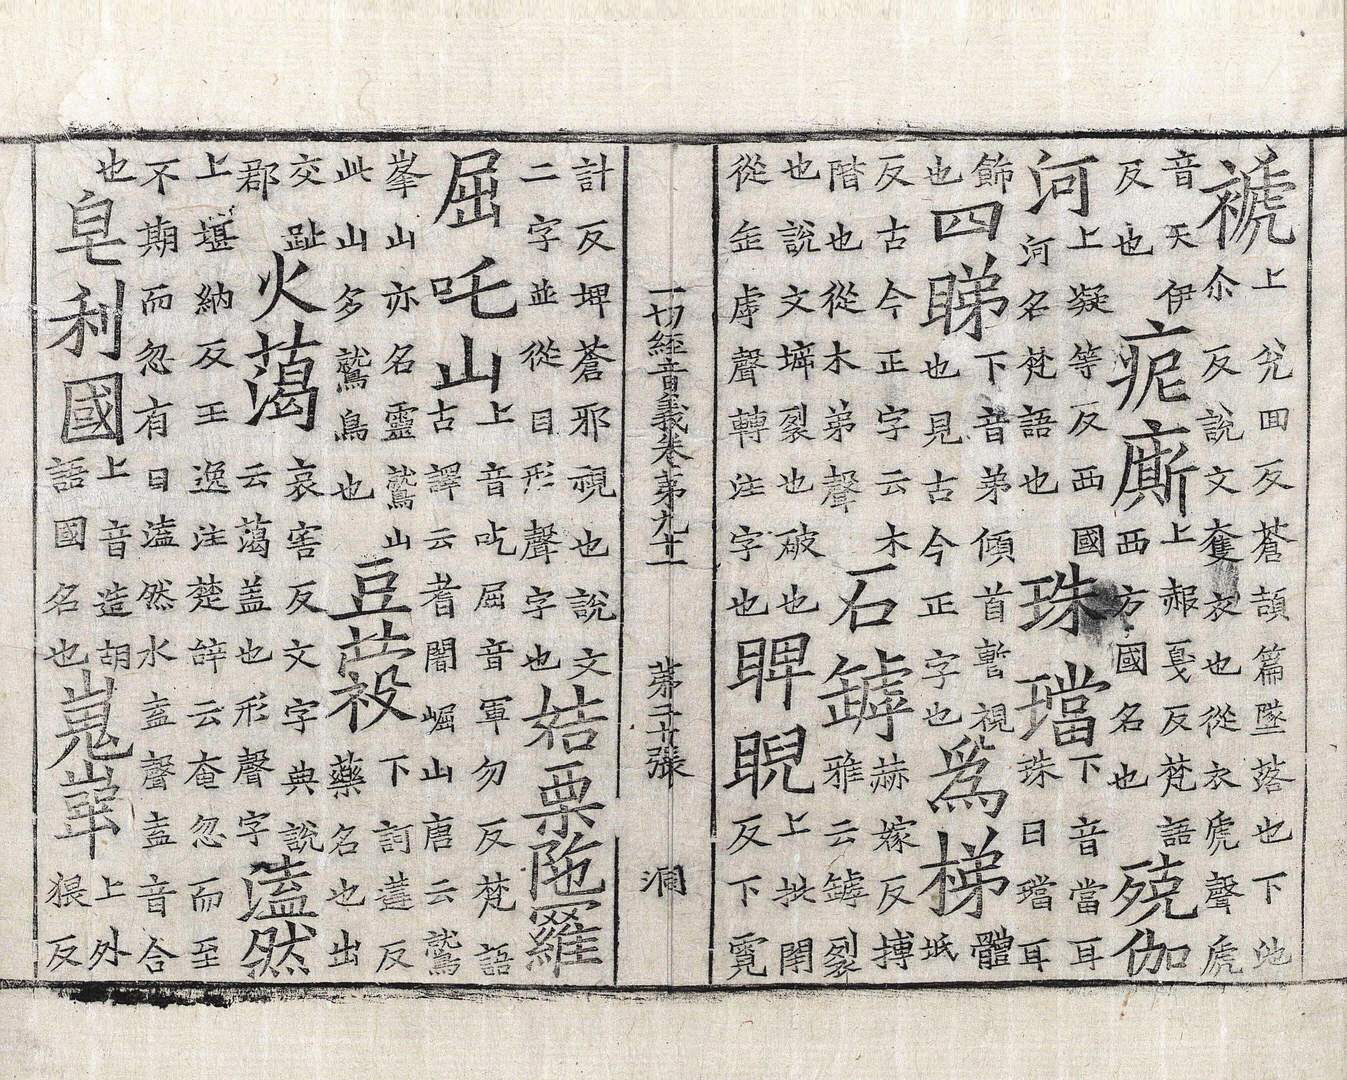 褫上兊囬反蒼頡篇墜落也下池
尒反說文奪衣也從衣虒聲虒
音天伊
反也
痆廝上赧戛反梵語
西方國名也
殑伽
河上凝等反西國
河名梵語也
珠璫下音當耳
珠曰璫耳
飾下音弟傾首暫視
也
四睇也見古今正字也
為梯體
反古今正字云木
階也從木弟聲
石罅赫嫁反搏
雅云罅裂
也說文㙤裂也破也
從缶虖聲轉注字也
睥睨上批閇
反下霓
一切經音義卷苐九十一 苐二十張 洞
計反埤蒼邪視也說文
二字並從目形聲字也
姞栗陁羅
屈吒山上音吃屈音軍勿反梵語
古譯云耆闍崛山唐云鷲
峯山亦名靈鷲山
此山多鷲鳥也
豆蔲下訶蓋反
藥名也出
交趾
郡
火藹哀害反文字典說
云藹盖也形聲字
溘然
上堪納反王逸注楚辝云奄忽而至
不期而忽有曰溘然水盍聲盍音合
也
皂利國上音造胡
語國名也
嵬崋上外
猥反